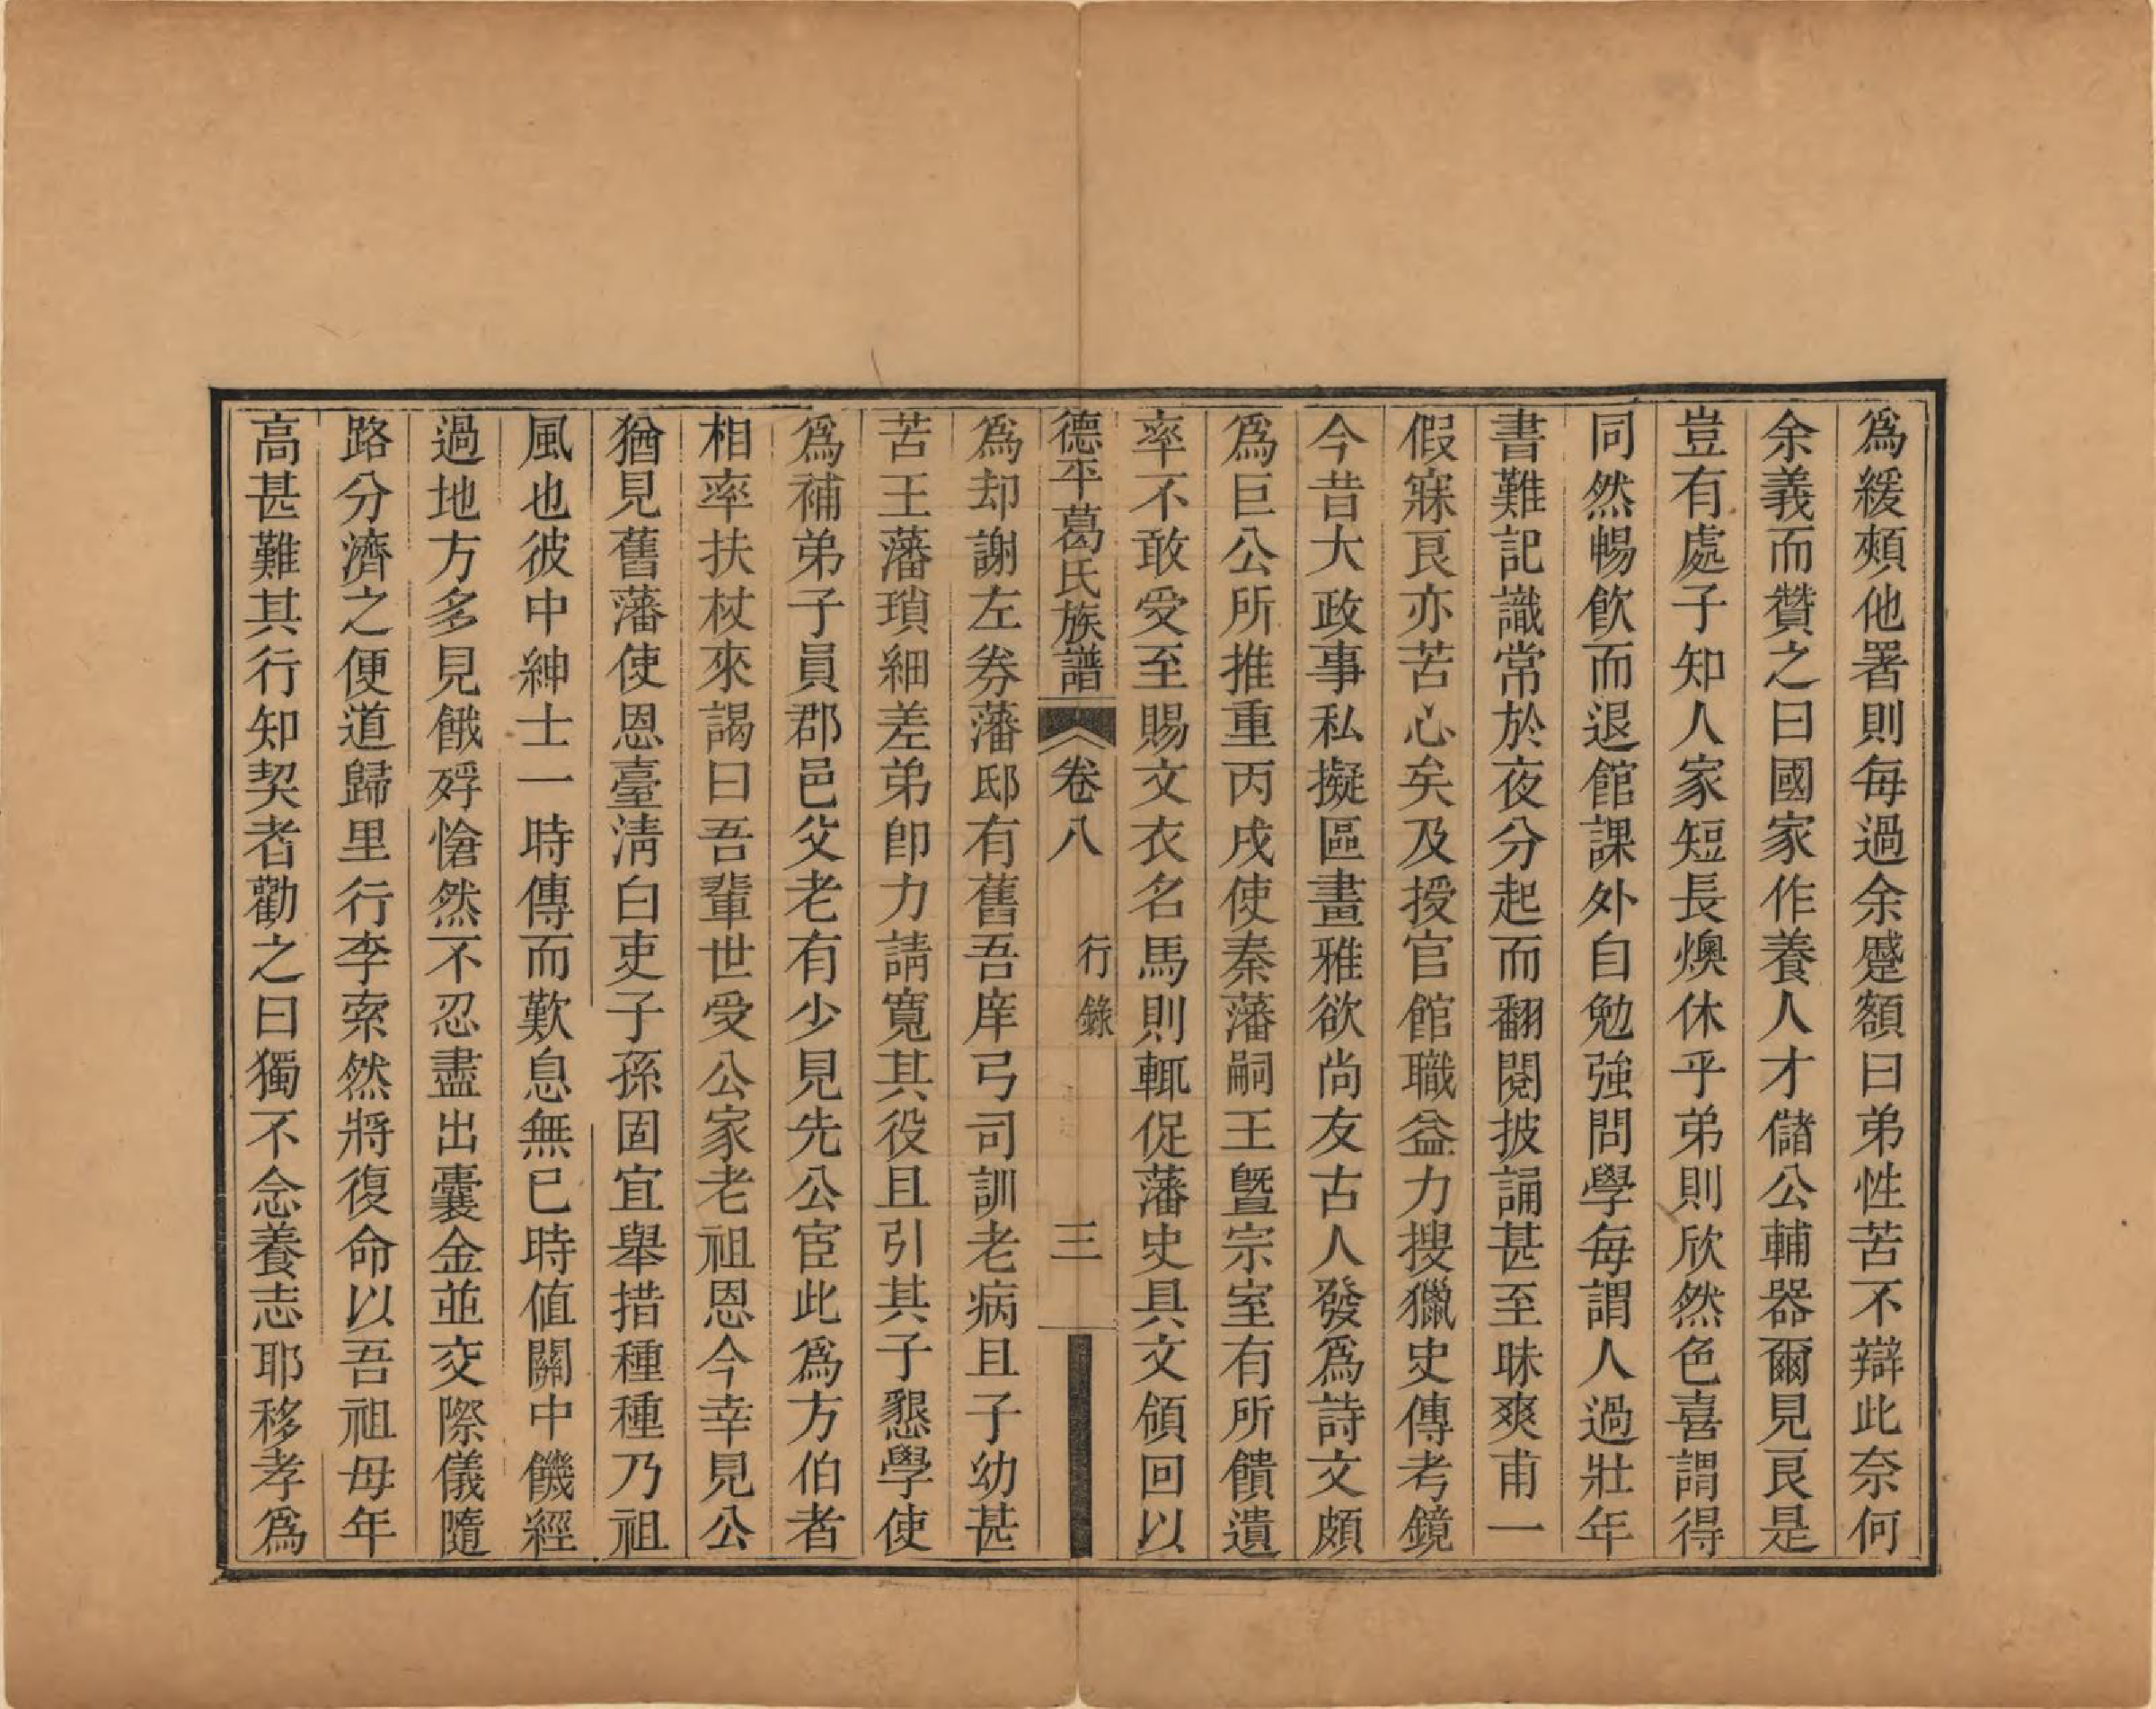 爲緩頰他署則每過余蹙額曰弟性苦不辯此奈何
余義而贊之曰國家作養人才儲公輔器爾見良是
豈有處子知人家短長燠休乎弟則欣然色喜謂得
同然暢飮而退館課外自勉強問學每謂人過壯年
書難記識常於夜分起而翻閱披誦甚至昧爽甫一
假寐良亦苦心矣及授官館職益力搜獵史傳考鏡
今昔大政事私擬區畫雅欲尚友古人發爲詩文頗
爲巨公所推重丙戌使秦藩嗣王曁宗室有所饋遺
率不敢受至賜文衣名馬則輒促藩史具文領回以
德平葛氏族譜 卷八 行錄 三
爲却謝左券藩邸有舊吾庠弓司訓老病且子幼甚
苦王藩瑣細差弟卽力請寬其役且引其子懇學使
爲補弟子員郡邑父老有少見先公宦此爲方伯者
相率扶杖來謁曰吾輩世受公家老祖恩今幸見公
猶見舊藩使恩臺淸白吏子孫固宜舉措種種乃祖
風也彼中紳士一時傳而歎息無已時値關中饑經
過地方多見餓殍愴然不忍盡出囊金並交際儀隨
路分濟之便道歸里行李索然將復命以吾祖母年
高甚難其行知契者勸之曰獨不念養志耶移孝爲